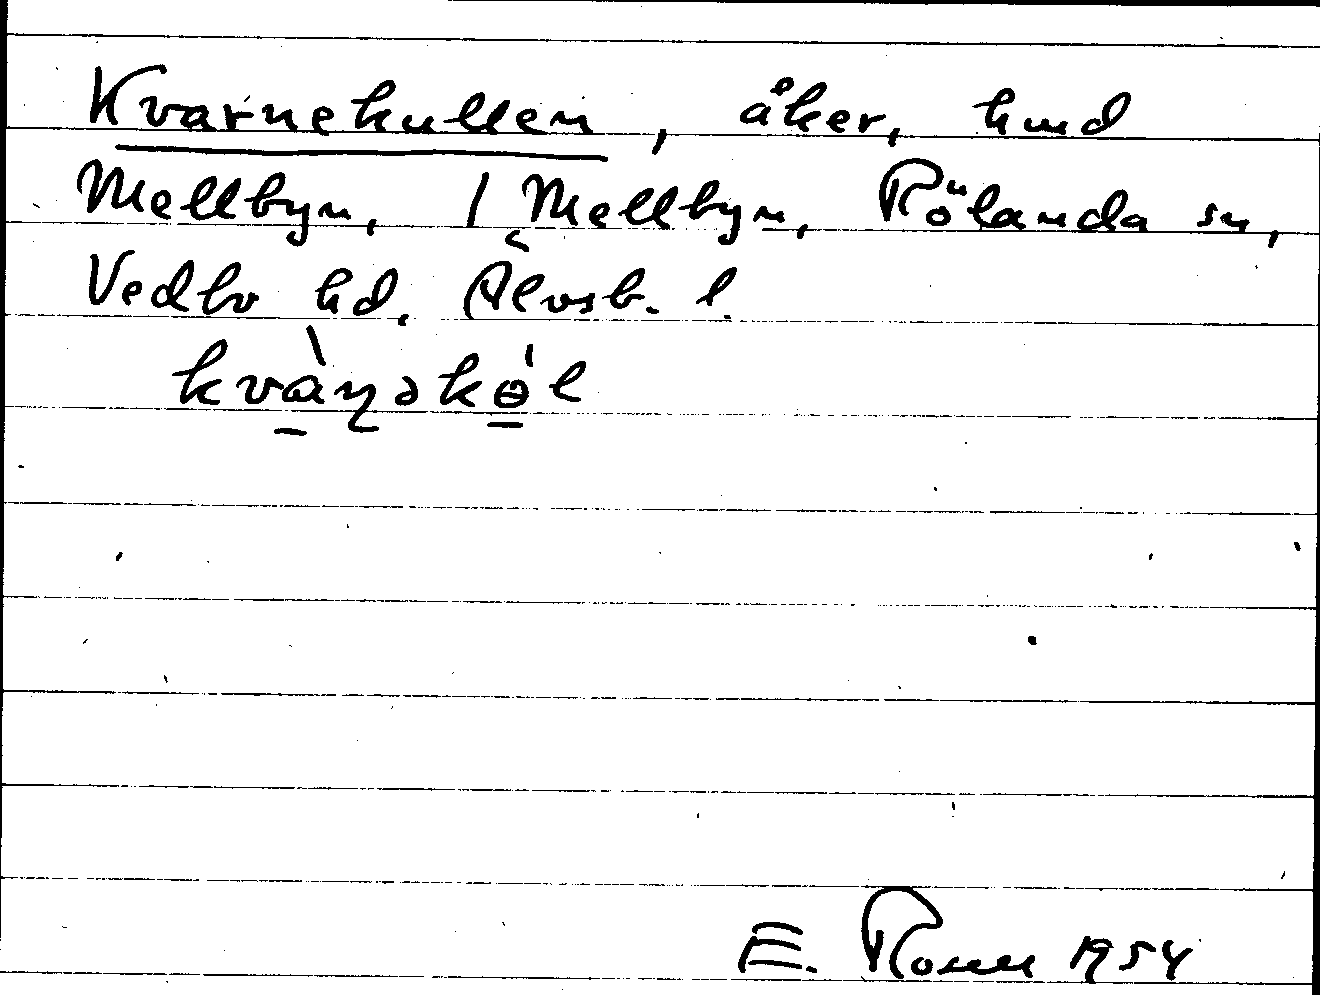 Kvarnekullen, åker, hmd
Mellbyn, 1 Mellbyn, Rölanda sn,
Vedbo hd. Älvsb. l.
kvàṉəkɵ́l
E. Rosell 1954